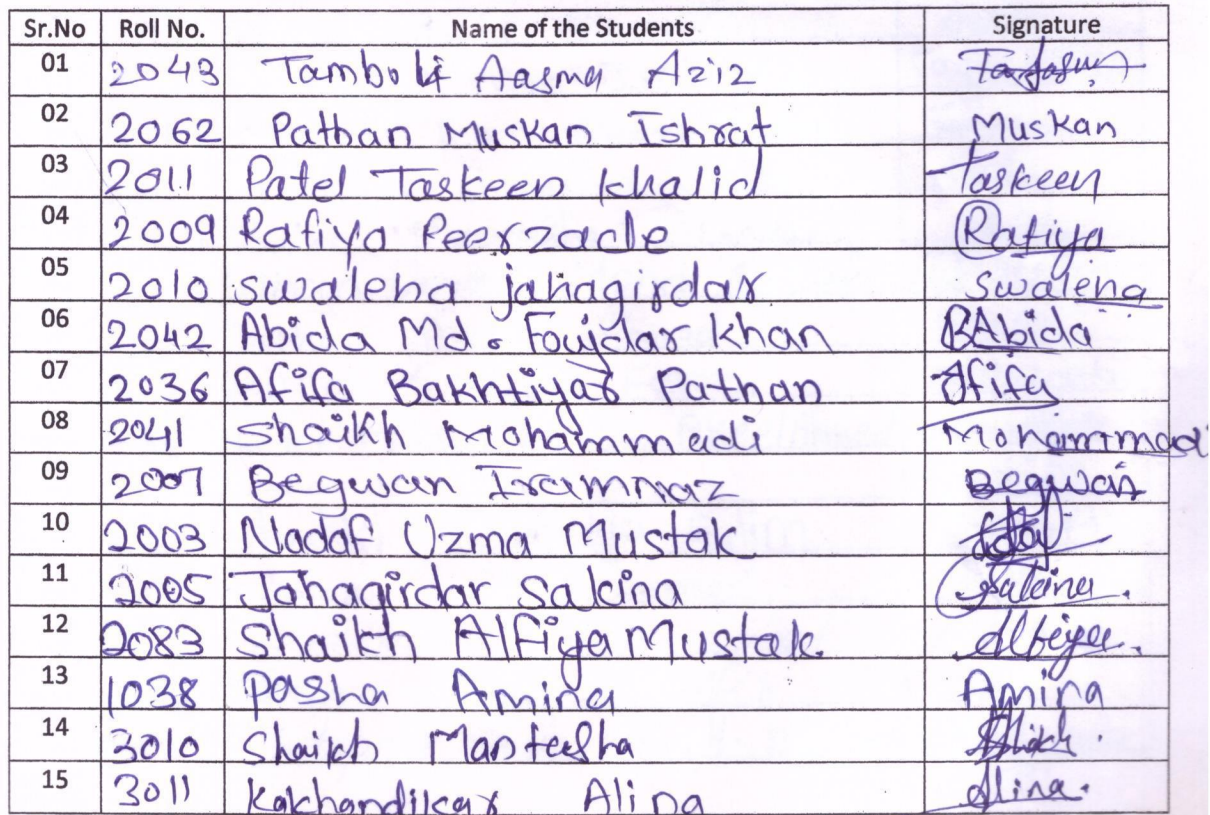 Sr.No Roll No. Name of the Students Signature
01 2043 Tamboli Aasma Aziz
02 2062 Pathan Muskan Ishrat Muskan
03 2011 Patel Taskeen Khalid Taskeen
04 2009 Rafiya Peerzade Rafiya
05 2010 swaleha jahagirdar Swaleha
06 2042 Abida Md. Foujdar khan Abida
07 2036 Afifa Bakhtiyar Pathan Afifa
08 2041 Shaikh Mohammadi Mohammadi
09 2007 Begwan Iramnaz Begwan
10 2003 Nadaf Uzma Mustak
11 2005 Jahagirdar Sakina Sakina.
12 2083 Shaikh Alfiya Mustak. Alfiya.
13 1038 pasha Amina Amina
14 3010 Shaikh Manteesha
15 3011 Kakchandikar Alina Alina.